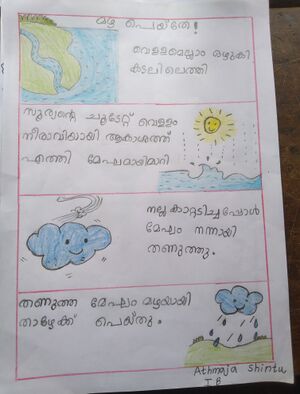 മഴ പെയ്തേ!
വെള്ളമെല്ലാം ഒഴുകി
കടലിലെത്തി
സൂര്യന്റെ ചൂടേറ്റ് വെള്ളം
നീരാവിയായി ആകാശത്ത്
എത്തി മേഘമായിമാറി
നല്ല കാറ്റടിച്ചപ്പോൾ
മേഘം നന്നായി
തണുത്തു.
തണുത്ത മേഘം മഴയായി
താഴേക്ക് പെയ്തു.
Athmaja Shintu
I B